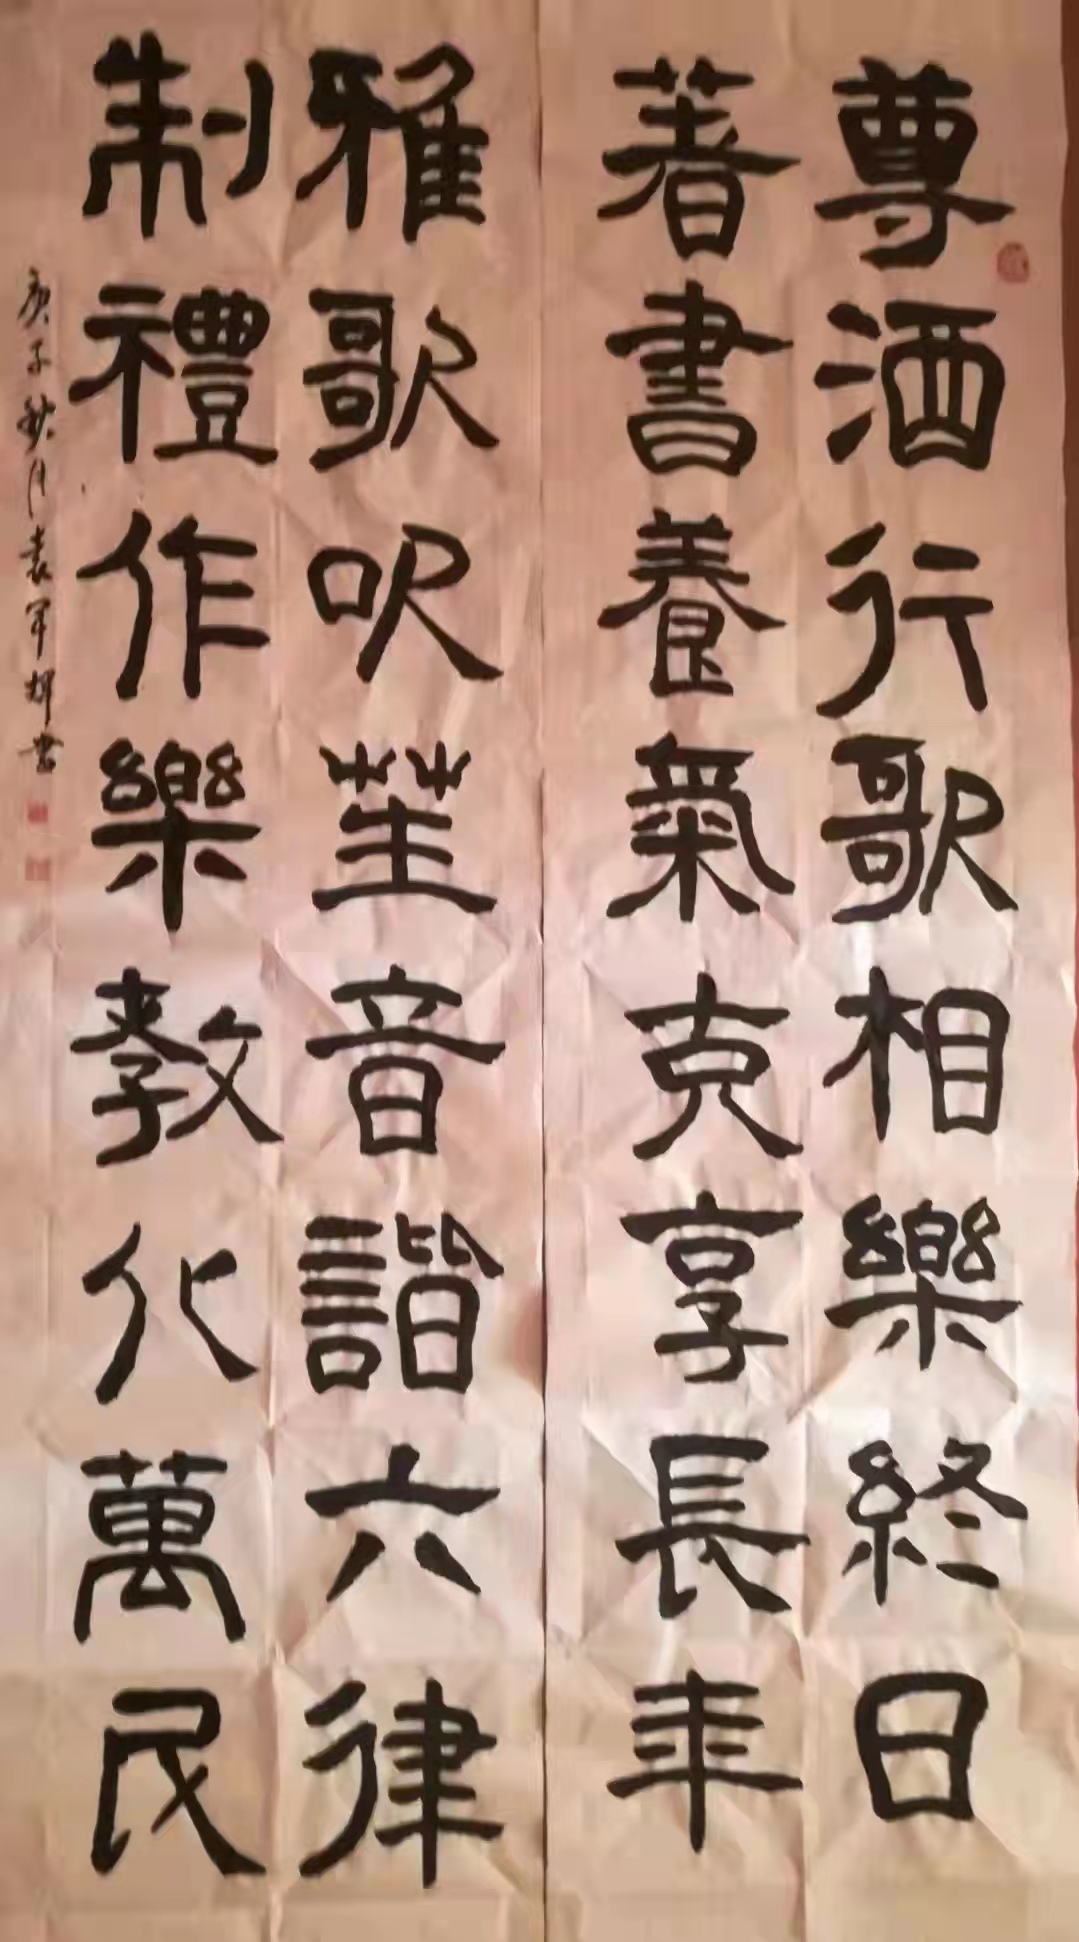 尊酒行歌相樂終日
著書養氣克享長年
雅歌吹笙音諧六律
制禮作樂教化萬民
庚子秋月袁军辉书